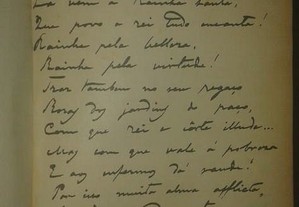 Lá vem a Rainha Santa,
Que povo e rei tudo encanta!
Rainha pela belleza,
Rainha pela virtude!
Traz tambem no seu regaço
Rosas dos jardins do paço,
Com que rei e côrte illude...
Mas com que vale á pobreza
E aos enfermos dá saude!
Por isso muita alma afflicta,